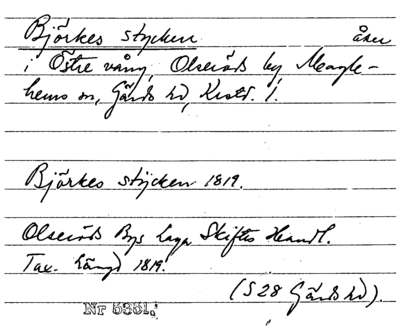 Björkes stycken åker
i Östre vång, Olseröds by, Magle-
hems sn, Gärds hd, Krstd. l.
Björkes stycken 1819.
Olseröds Bys Laga Skiftes Handl.
Tax. Längd 1819.
(S 28 Gärds hd).
Nr 5351.